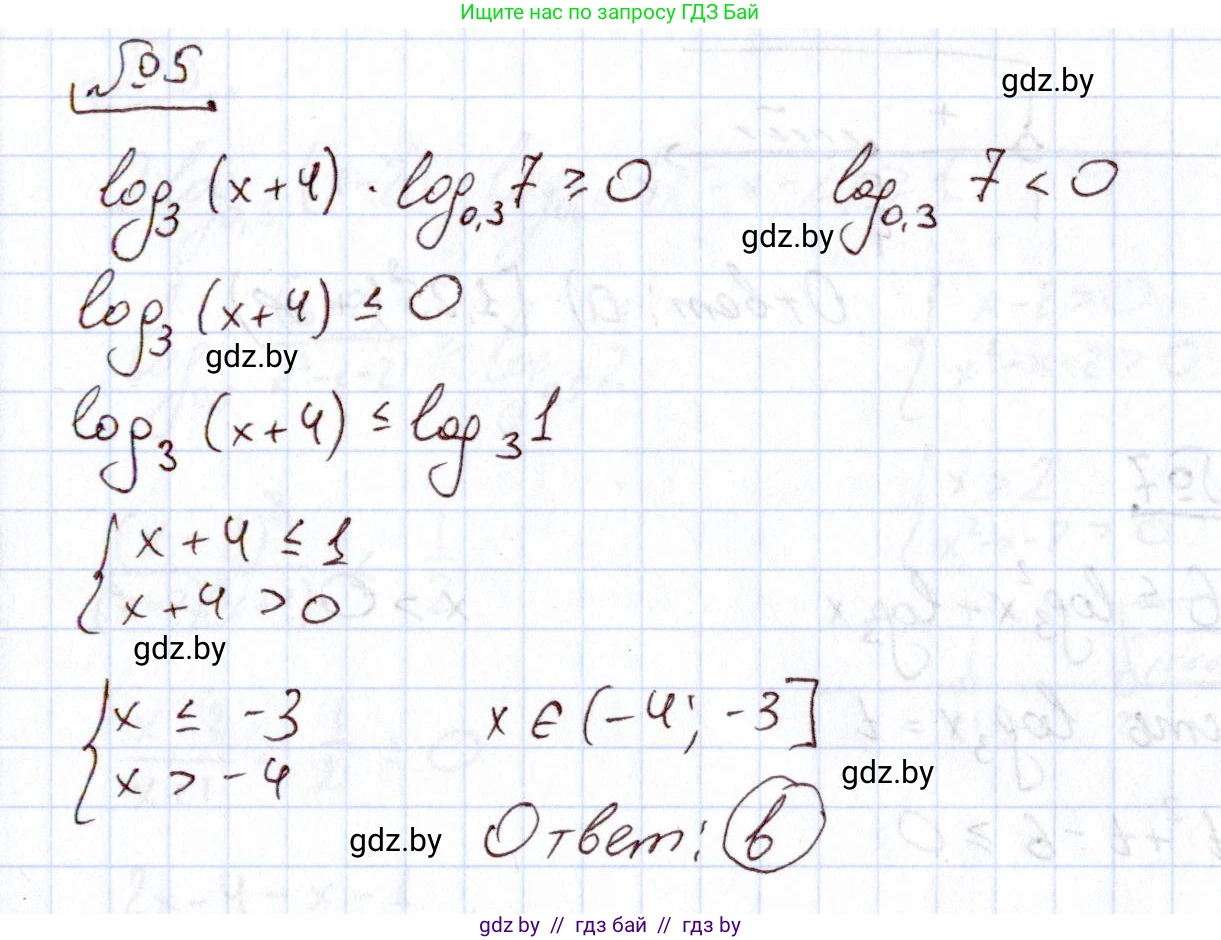 Ищите нас по запросу ГДЗ Бай
№5
gdz.by
log₃ (x+4) · log₀,₃ 7 ≥ 0 log₀,₃ 7 < 0
gdz.by
log₃ (x+4) ≤ 0
gdz.by
log₃ (x+4) ≤ log₃ 1
{ x + 4 ≤ 1
x + 4 > 0
gdz.by
{ x ≤ -3 x ∈ (-4; -3]
x > -4
gdz.by
gdz.by
Ответ: в
gdz by // гдз бай // гдз by